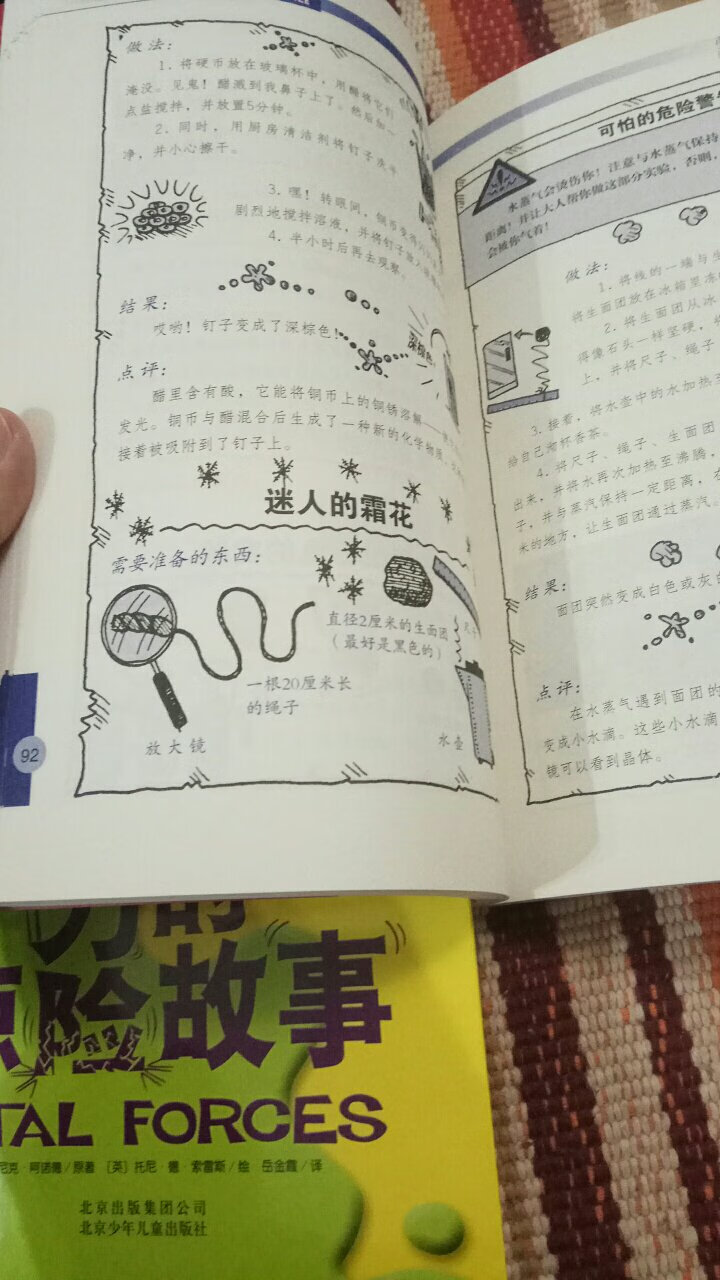 做法:
1. 将硬币放在玻璃杯中,用醋将它们
淹没。见鬼!醋溅到我鼻子上了。然后加一
点盐搅拌,并放置5分钟。
2. 同时,用厨房清洁剂将钉子洗干
净,并小心擦干。
3. 嘿!转眼间,铜币变得闪闪
剧烈地搅拌溶液,并将钉子放入
4. 半小时后再去观察
结果:
哎哟!钉子变成了深棕色!
深棕色
点评:
醋里含有酸,它能将铜币上的铜锈溶解——
发光。铜币与醋混合后生成了一种新的化学物质
接着被吸附到了钉子上。
迷人的霜花
需要准备的东西:
直径2厘米的生面团
(最好是黑色的)
尺子
一根20厘米长
的绳子
放大镜
水壶
92
可怕的危险警
水蒸气会烫伤你!注意与水蒸气保持
距离!并让大人帮你做这部分实验,否则,
会被你气着!
做法:
1. 将线的一端与生
将生面团放在冰箱里冻
2. 将生面团从冰
得像石头一样坚硬,
上,并将尺子、绳子
3. 接着,将水壶中的水加热至
给自己沏杯香茶。
4. 将尺子、绳子、生面团
出来,并将水再次加热至沸腾,
子,并与蒸汽保持一定距离,在
米的地方,让生面团通过蒸汽
结果:
面团突然变成白色或灰白
点评:
在水蒸气遇到面团的
变成小水滴。这些小水滴
镜可以看到晶体。
力的
惊险故事
TAL FORCES
尼克·阿诺德/原著 [英]托尼·德·索雷斯/绘 岳金霞/译
北京出版集团公司
北京少年儿童出版社